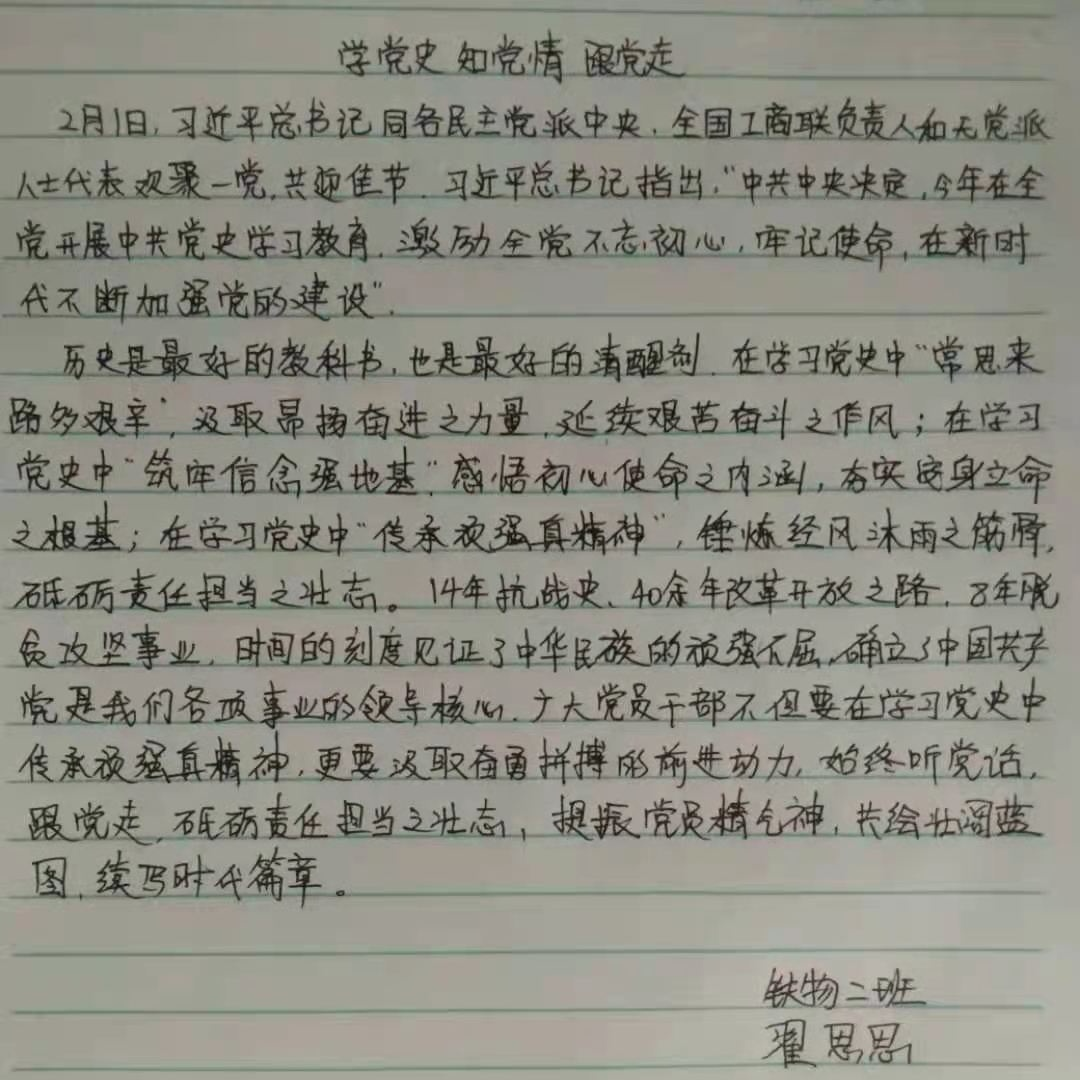 学党史 知党情 跟党走
2月1日，习近平总书记同各民主党派中央、全国工商联负责人和无党派
人士代表欢聚一党，共迎佳节。习近平总书记指出，“中共中央决定，今年在全
党开展中共党史学习教育，激励全党不忘初心，牢记使命，在新时
代不断加强党的建设”。
历史是最好的教科书，也是最好的清醒剂。在学习党史中“常思来
路多艰辛”，汲取昂扬奋进之力量，延续艰苦奋斗之作风；在学习
党史中“筑牢信念强地基”感悟初心使命之内涵，夯实安身立命
之根基；在学习党史中“传承顽强真精神”，锤炼经风沐雨之筋骨，
砥砺责任担当之壮志。14年抗战史、40余年改革开放之路、8年脱
贫攻坚事业，时间的刻度见证了中华民族的顽强不屈，确立了中国共产
党是我们各项事业的领导核心。广大党员干部不但要在学习党史中
传承顽强真精神，更要汲取奋勇拼搏的前进动力，始终听党话，
跟党走，砥砺责任担当之壮志，提振党员精气神，共绘壮阔蓝
图，续写时代篇章。
铁物二班
翟思思